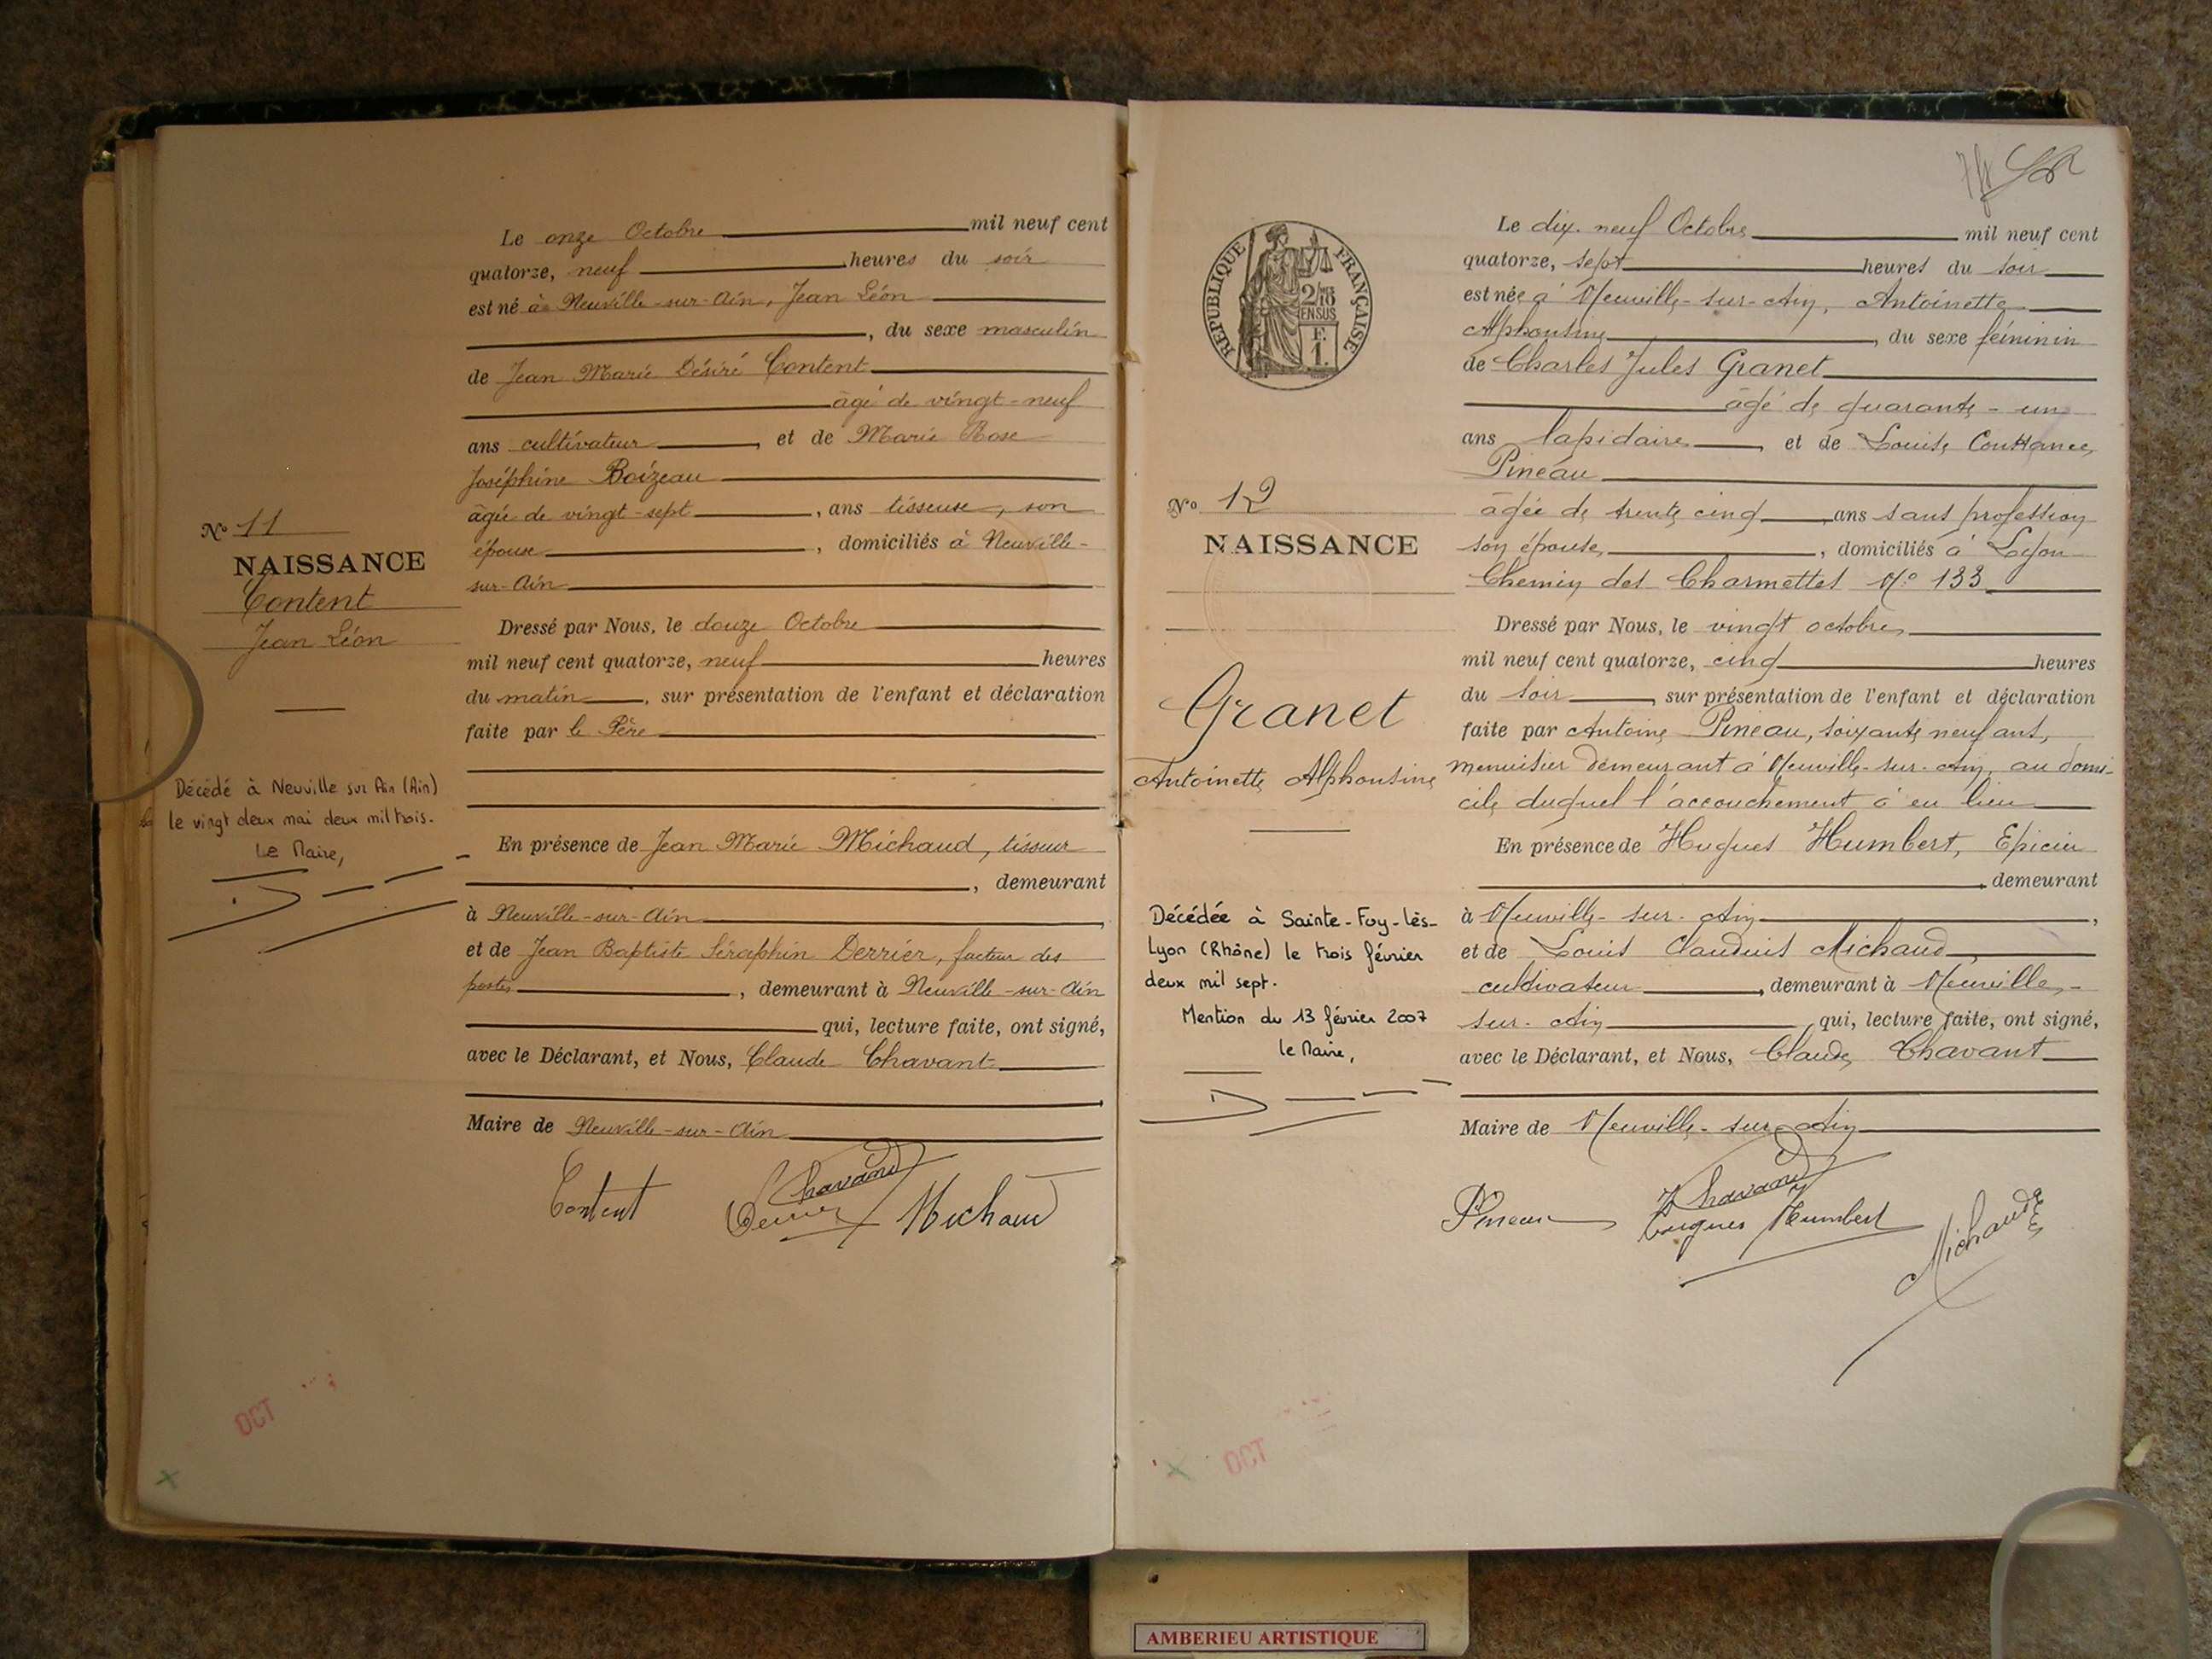 Nº 11
NAISSANCE
Content
Jean Léon
Décédé à Neuville sur Ain (Ain)
le vingt deux mai deux mil trois.
Le Maire,
Le onze Octobre mil neuf cent
quatorze, neuf heures du soir
est né à Neuville-sur-Ain, Jean Léon
, du sexe masculin
de Jean Marie Désiré Content
âgé de vingt-neuf
ans cultivateur, et de Marie Rose
Joséphine Boizeau
âgée de vingt-sept, ans tisseuse, son
épouse, domiciliés à Neuville-
sur-Ain
Dressé par Nous, le douze Octobre
mil neuf cent quatorze, neuf heures
du matin, sur présentation de l'enfant et déclaration
faite par le Père
En présence de Jean Marie Michaud, tisseur
, demeurant
à Neuville-sur-Ain
et de Jean Baptiste Séraphin Derrier, facteur des
postes, demeurant à Neuville-sur-Ain
qui, lecture faite, ont signé,
avec le Déclarant, et Nous, Claude Chavant
Maire de Neuville-sur-Ain
Content Derrier Chavant Michaud
OCT
RÉPUBLIQUE FRANÇAISE
2/10
EN SUS
F.
1.
Nº 12
NAISSANCE
Granet
Antoinette Alphonsine
Décédée à Sainte-Foy-lès-
Lyon (Rhône) le trois février
deux mil sept.
Mention du 13 février 2007
le Maire,
Le dix-neuf Octobre mil neuf cent
quatorze, sept heures du soir
est née à Neuville-sur-Ain, Antoinette
Alphonsine, du sexe féminin
de Charles Jules Granet
âgé de quarante-un
ans lapidaire, et de Louise Constance
Pineau
âgée de trente cinq ans sans profession
son épouse, domiciliés à Lyon
Chemin des Charmettes Nº 133
Dressé par Nous, le vingt octobre
mil neuf cent quatorze, cinq heures
du soir, sur présentation de l'enfant et déclaration
faite par Antoine Pineau, soixante neuf ans,
menuisier demeurant à Neuville-sur-Ain, au domi-
cile duquel l'accouchement a eu lieu
En présence de Hugues Humbert, Epicier
, demeurant
à Neuville-sur-Ain,
et de Louis Claudius Michaud,
cultivateur, demeurant à Neuville-
sur-Ain, qui, lecture faite, ont signé,
avec le Déclarant, et Nous, Claude Chavant
Maire de Neuville-sur-Ain
Pineau Chavant Hugues Humbert Michaud
OCT
AMBERIEU ARTISTIQUE